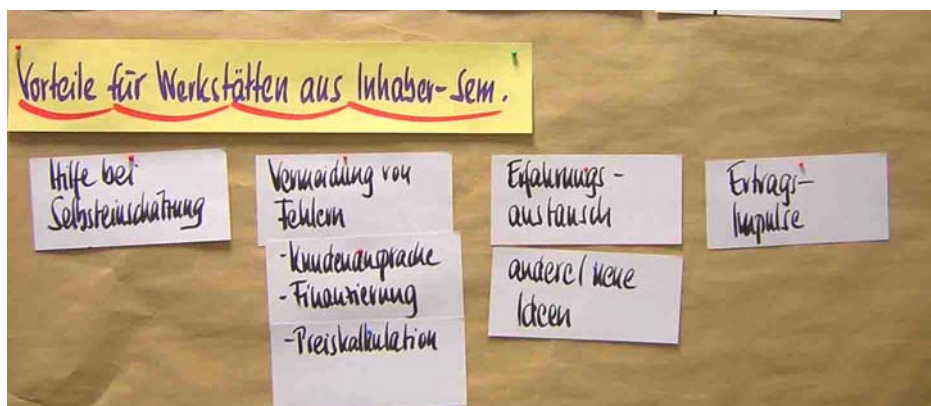 Vorteile für Werkstätten aus Inhaber-Sem.
Hilfe bei
Selbsteinschätzung
Vermeidung von
Fehlern
-Kundenansprache
-Finanzierung
-Preiskalkulation
Erfahrungs-
austausch
andere/neue
Ideen
Ertrags-
Impulse